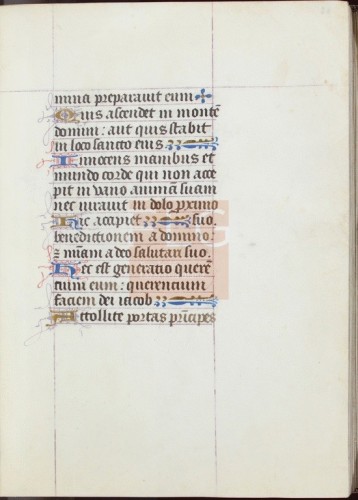 mina preparavit eum
Quis ascendet in montē
domini: aut quis stabit
in loco sancto eius
Innocens manibus et
mundo corde qui non acce
pit in vano animam suam
nec iuravit in dolo proximo
Hic accipiet suo.
benedictionem a domino:
⁊ mīam a deo salutari suo.
Hec est generatio querē
cium eum: querencium
faciem dei iacob
Attollite portas prīcipes